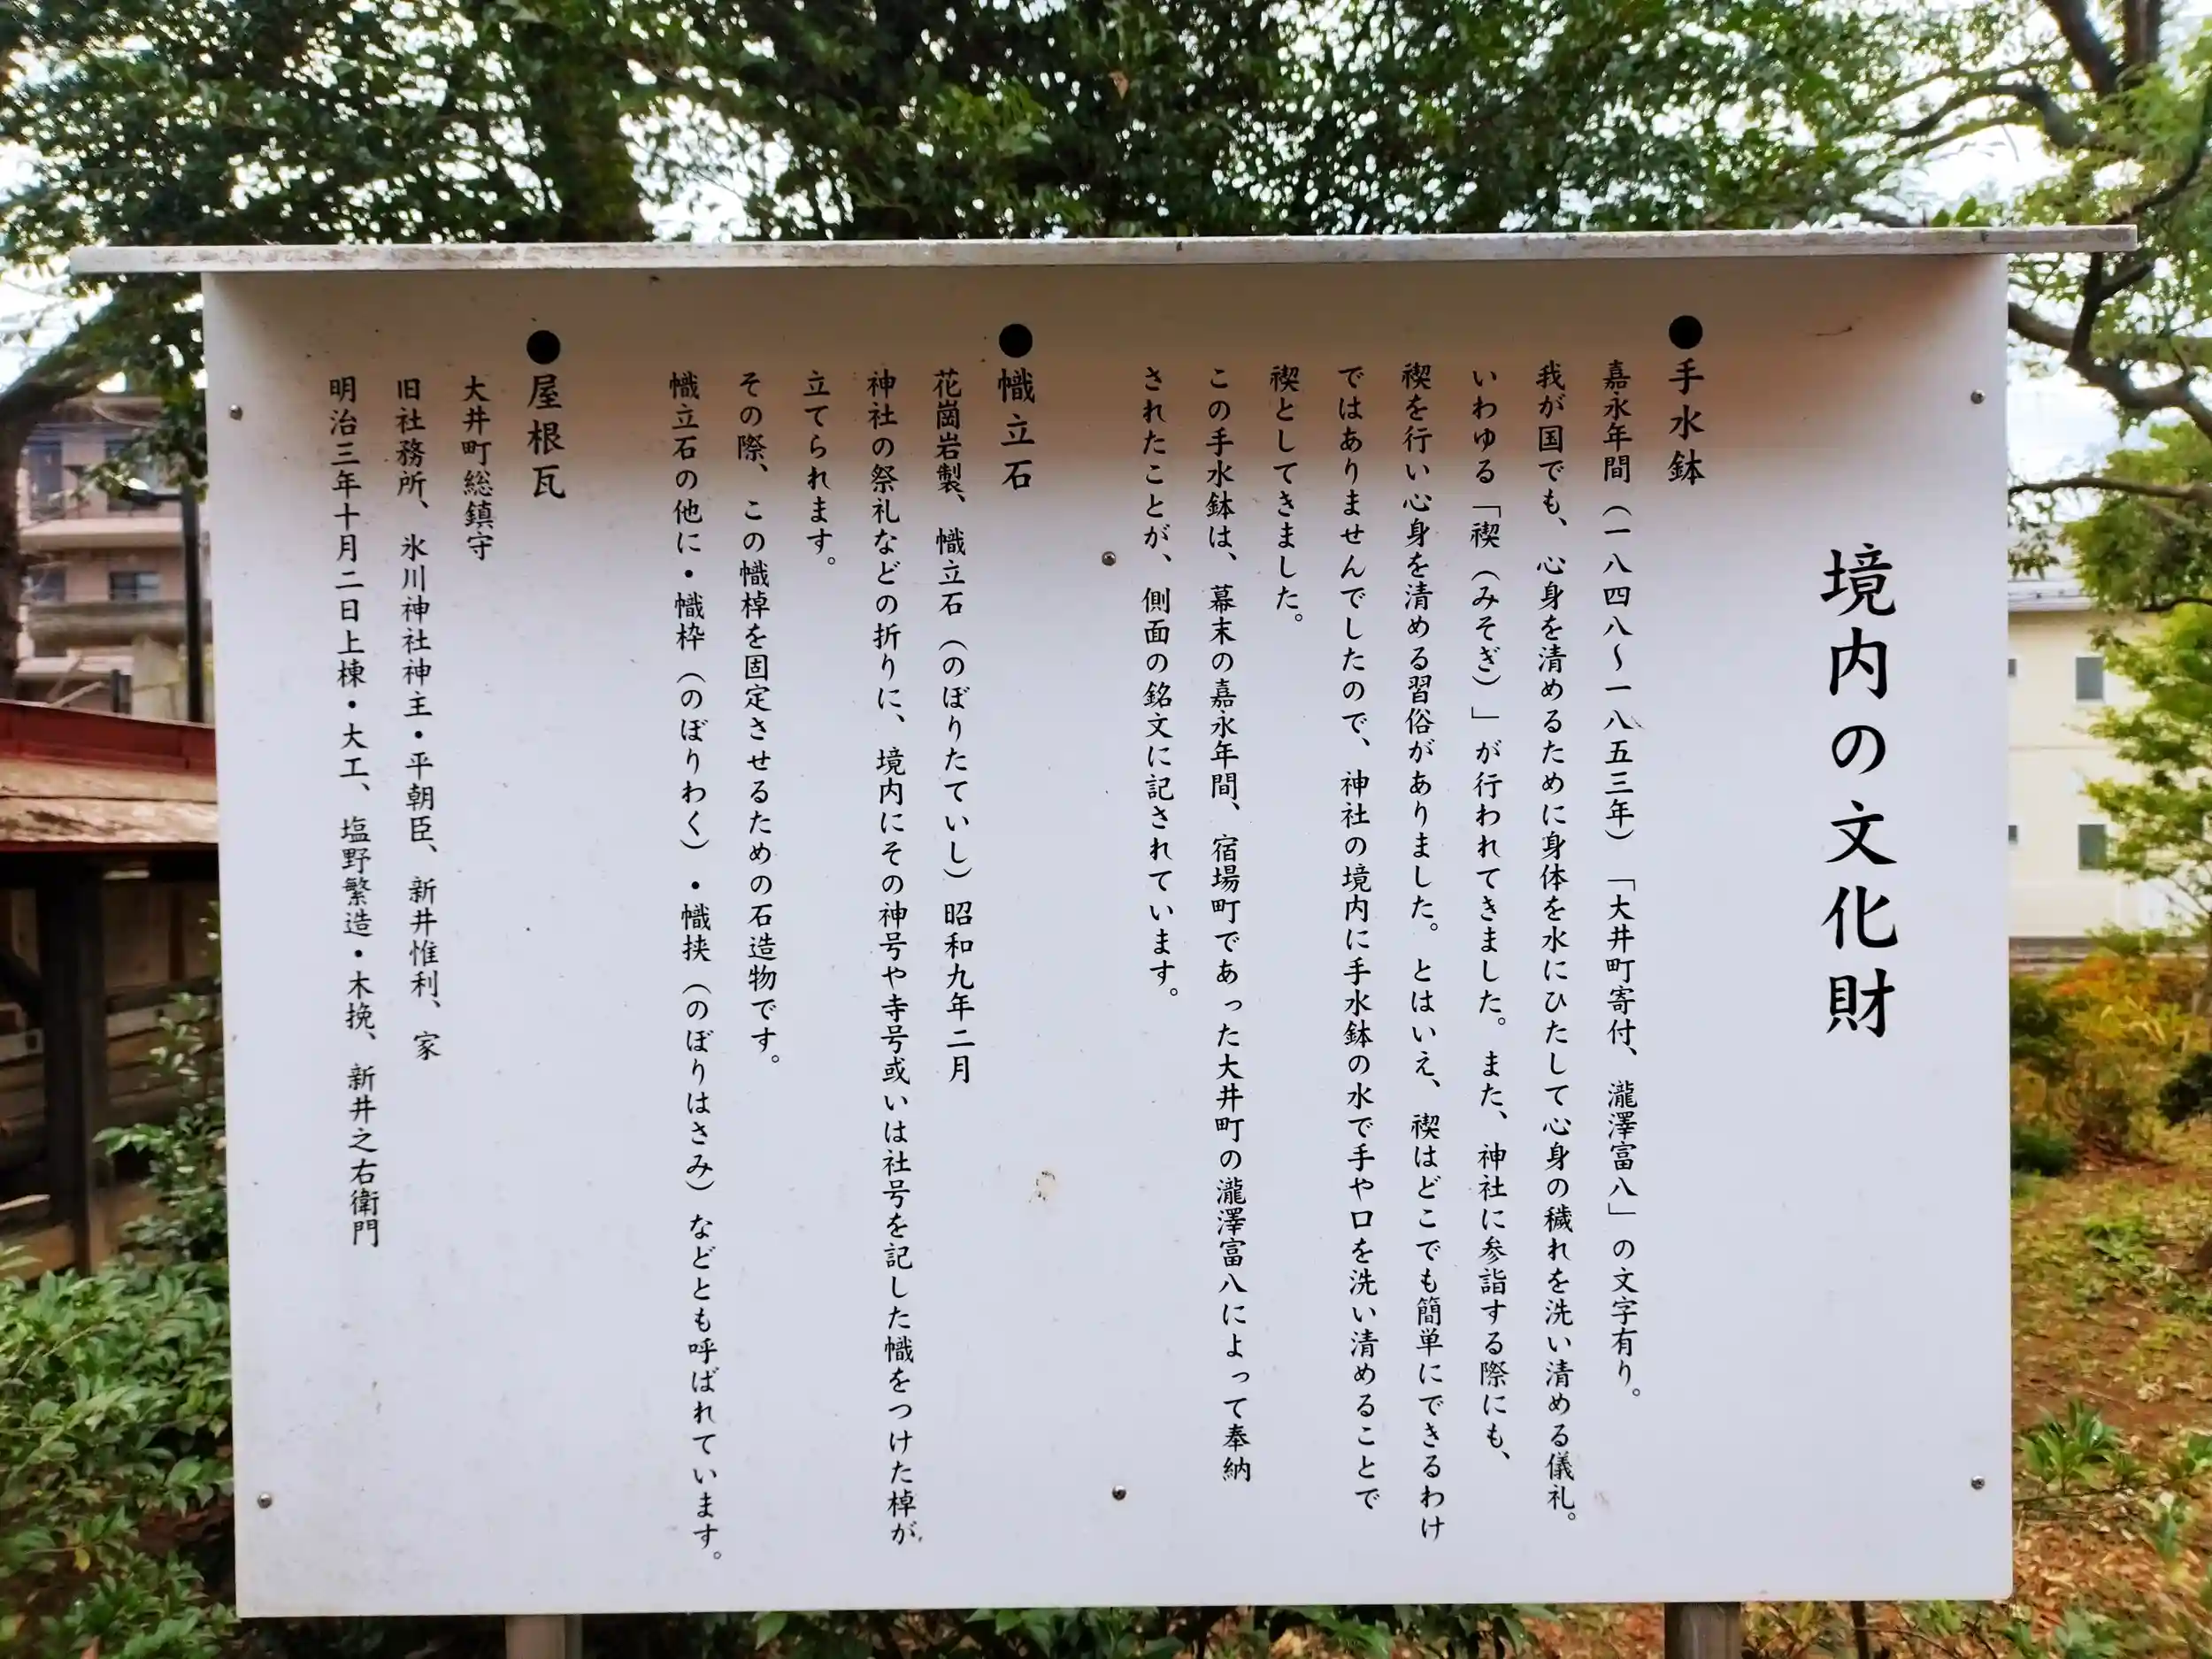 境内の文化財
●手水鉢
嘉永年間（一八四八～一八五三年）「大井町寄付、瀧澤富八」の文字有り。
我が国でも、心身を清めるために身体を水にひたして心身の穢れを洗い清める儀礼。
いわゆる「禊（みそぎ）」が行われてきました。また、神社に参詣する際にも、
禊を行い心身を清める習俗がありました。とはいえ、禊はどこでも簡単にできるわけ
ではありませんでしたので、神社の境内に手水鉢の水で手や口を洗い清めることで
禊としてきました。
この手水鉢は、幕末の嘉永年間、宿場町であった大井町の瀧澤富八によって奉納
されたことが、側面の銘文に記されています。
●幟立石
花崗岩製、幟立石（のぼりたていし）昭和九年二月
神社の祭礼などの折りに、境内にその神号や寺号或いは社号を記した幟をつけた棹が
立てられます。
その際、この幟棹を固定させるための石造物です。
幟立石の他に・幟枠（のぼりわく）・幟挟（のぼりはさみ）などとも呼ばれています。
●屋根瓦
大井町総鎮守
旧社務所、氷川神社神主・平朝臣、新井惟利、家
明治三年十月二日上棟・大工、塩野繁造・木挽、新井之右衛門